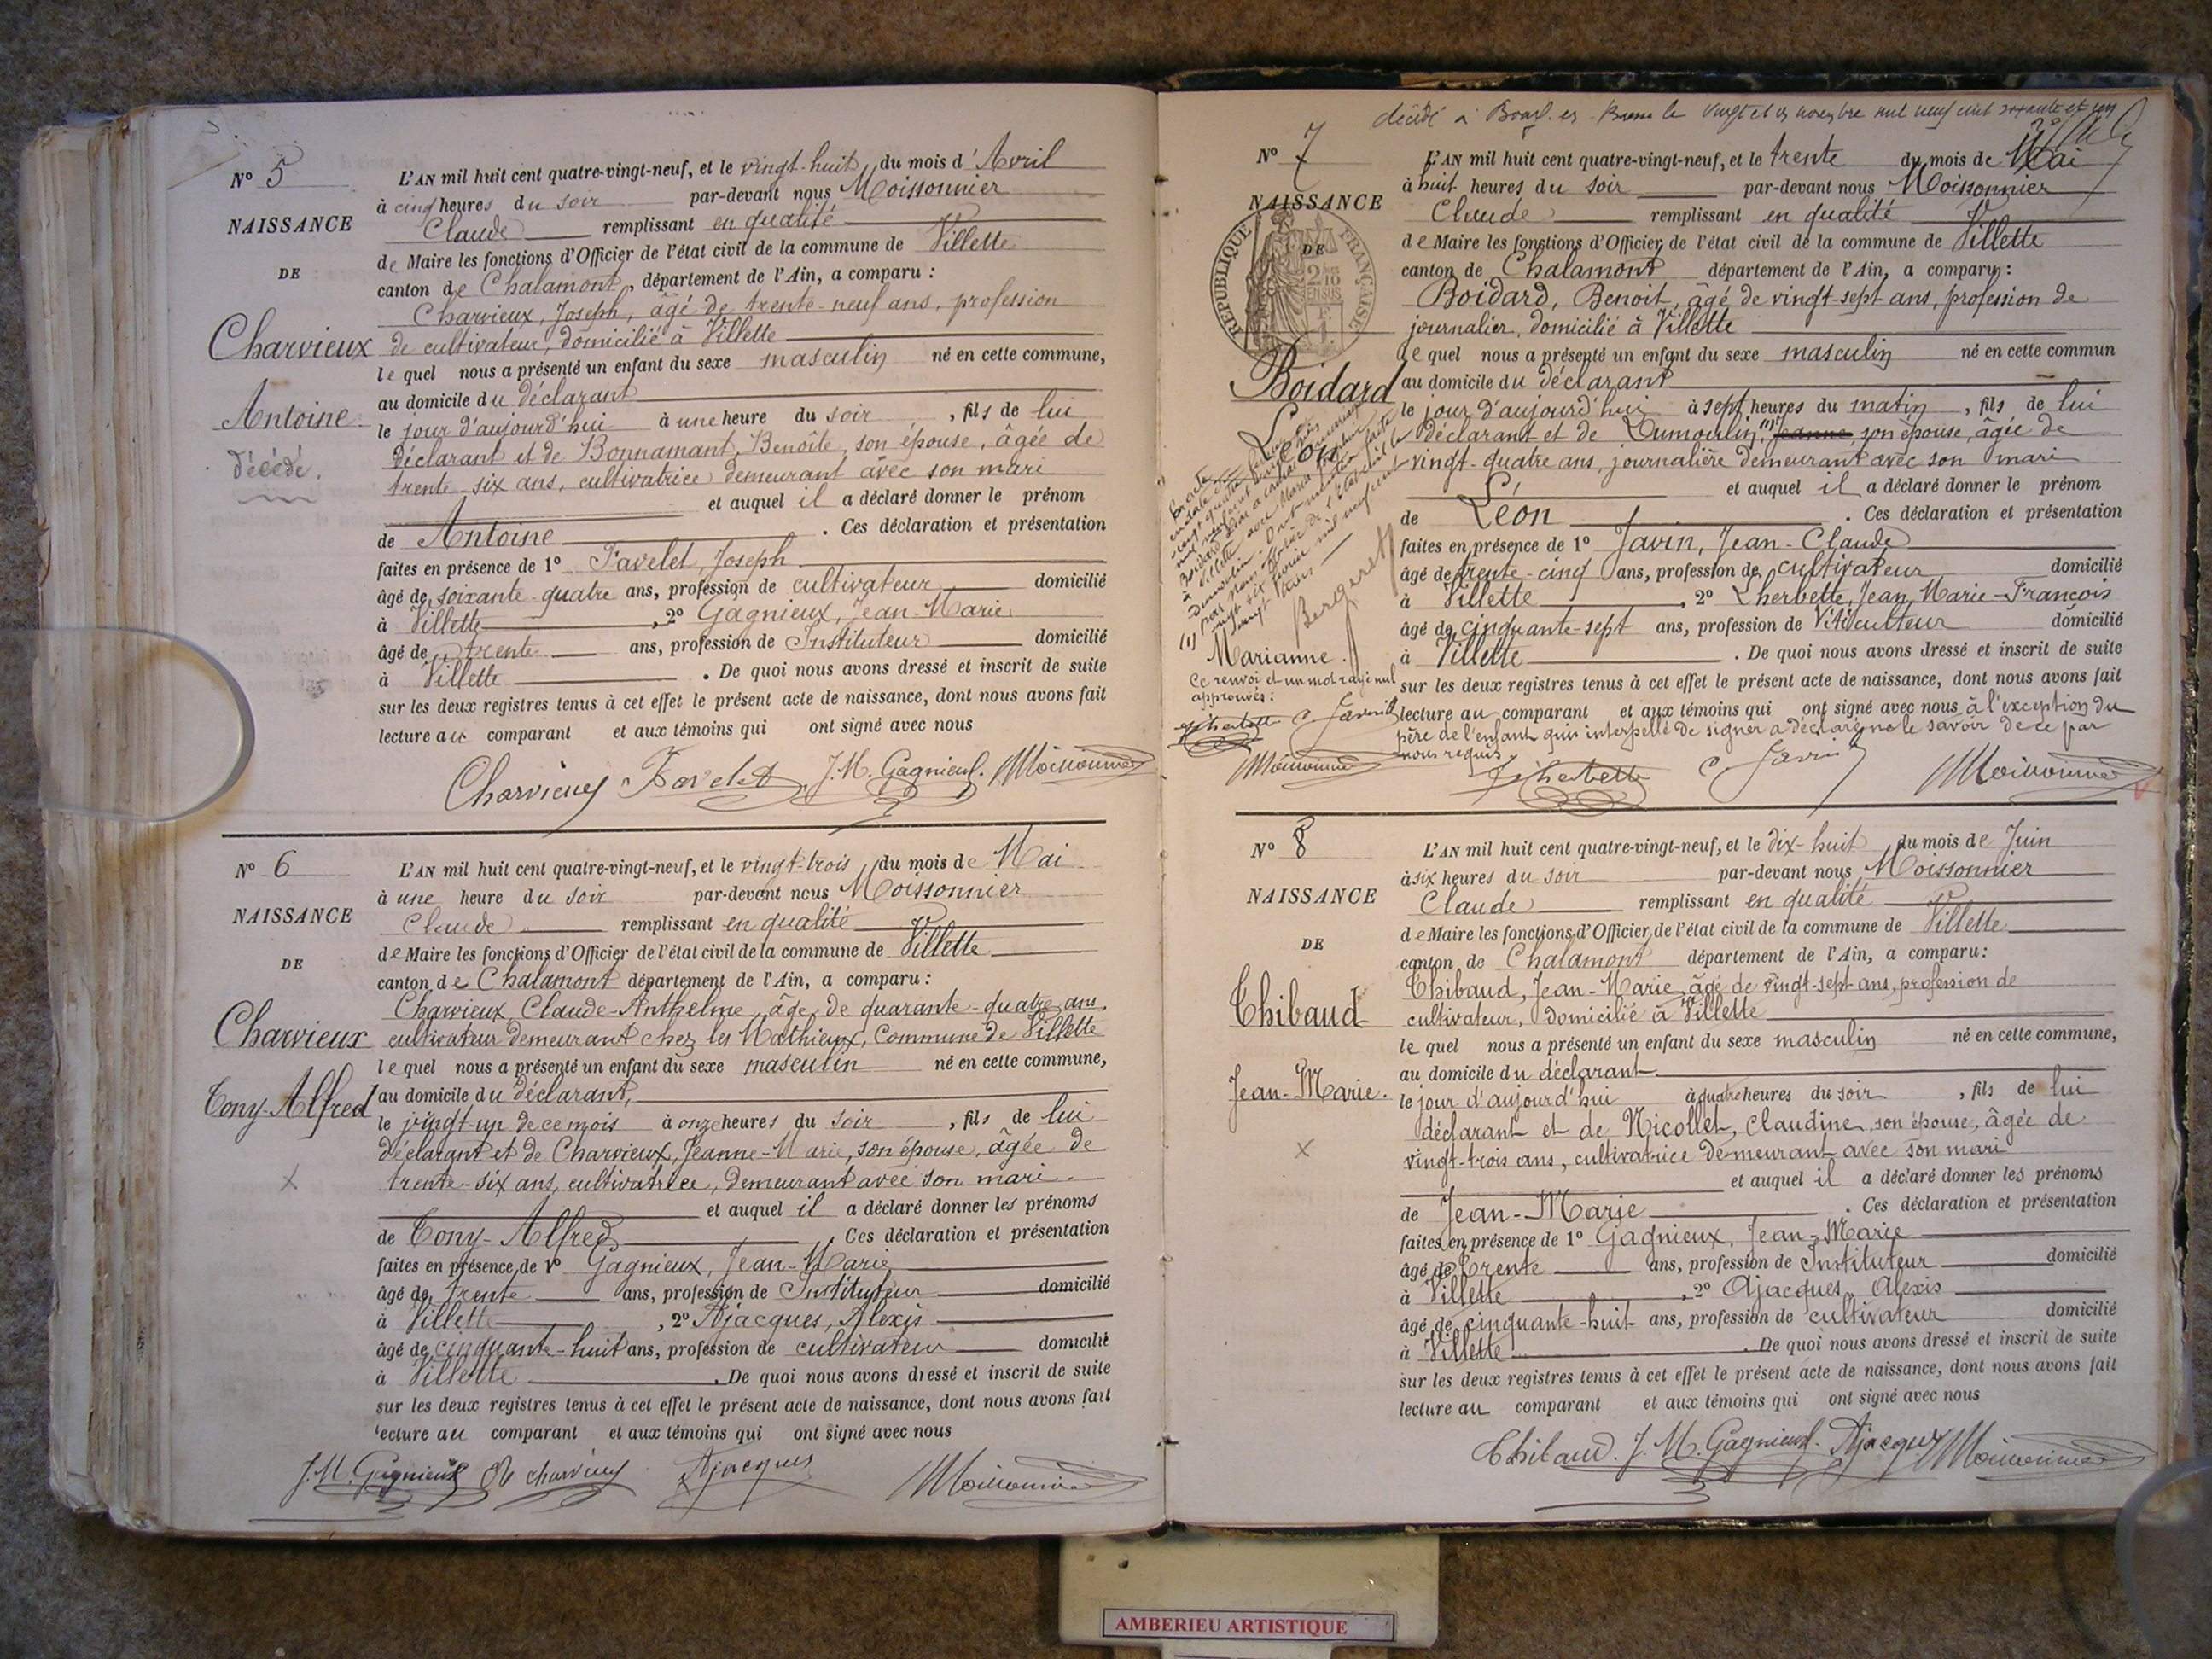 N° 5
NAISSANCE
DE
Charvieux
Antoine
décédé.
L'AN mil huit cent quatre-vingt-neuf, et le vingt-huit du mois d'Avril
à cinq heures du soir par-devant nous Moissonnier
Claude remplissant en qualité
de Maire les fonctions d'Officier de l'état civil de la commune de Villette
canton de Chalamont, département de l'Ain, a comparu :
Charvieux, Joseph, âgé de trente-neuf ans, profession
de cultivateur, domicilié à Villette
lequel nous a présenté un enfant du sexe masculin né en cette commune,
au domicile du déclarant
le jour d'aujourd'hui à une heure du soir, fils de lui
déclarant et de Bonnamant, Benoîte, son épouse, âgée de
trente-six ans, cultivatrice demeurant avec son mari
et auquel il a déclaré donner le prénom
de Antoine. Ces déclaration et présentation
faites en présence de 1° Favelet, Joseph
âgé de soixante-quatre ans, profession de cultivateur domicilié
à Villette, 2° Gagnieux, Jean-Marie
âgé de trente ans, profession de Instituteur domicilié
à Villette. De quoi nous avons dressé et inscrit de suite
sur les deux registres tenus à cet effet le présent acte de naissance, dont nous avons fait
lecture au comparant et aux témoins qui ont signé avec nous
Charvieux Favelet J.M. Gagnieux. Moissonnier
N° 6
NAISSANCE
DE
Charvieux
Tony-Alfred
L'AN mil huit cent quatre-vingt-neuf, et le vingt-trois du mois de Mai
à une heure du soir par-devant nous Moissonnier
Claude remplissant en qualité
de Maire les fonctions d'Officier de l'état civil de la commune de Villette
canton de Chalamont département de l'Ain, a comparu :
Charvieux, Claude-Anthelme, âgé de quarante-quatre ans,
cultivateur demeurant chez les Mathieux, Commune de Villette
lequel nous a présenté un enfant du sexe masculin né en cette commune,
au domicile du déclarant,
le vingt-un de ce mois à onze heures du soir, fils de lui
déclarant et de Charvieux, Jeanne-Marie, son épouse, âgée de
trente-six ans, cultivatrice, demeurant avec son mari.
et auquel il a déclaré donner les prénoms
de Tony-Alfred. Ces déclaration et présentation
faites en présence de 1° Gagnieux, Jean-Marie
âgé de trente ans, profession de Instituteur domicilié
à Villette, 2° Ajacques, Alexis
âgé de cinquante-huit ans, profession de cultivateur domicilié
à Villette. De quoi nous avons dressé et inscrit de suite
sur les deux registres tenus à cet effet le présent acte de naissance, dont nous avons fait
lecture au comparant et aux témoins qui ont signé avec nous
J.M. Gagnieux Charvieux Ajacques Moissonnier
décédé à Bourg en Bresse le vingt et un novembre mil neuf cent soixante et un
N° 7
NAISSANCE
DE
RÉPUBLIQUE FRANÇAISE
Boidard
Léon
(1)
Marianne.
Ce renvoi et un mot rayé nul
approuvés :
Moissonnier
L'AN mil huit cent quatre-vingt-neuf, et le trente du mois de Mai
à huit heures du soir par-devant nous Moissonnier
Claude remplissant en qualité
de Maire les fonctions d'Officier de l'état civil de la commune de Villette
canton de Chalamont département de l'Ain, a comparu :
Boidard, Benoit, âgé de vingt-sept ans, profession de
journalier, domicilié à Villette
lequel nous a présenté un enfant du sexe masculin né en cette commun
au domicile du déclarant
le jour d'aujourd'hui à sept heures du matin, fils de lui
déclarant et de Dumoulin, (1) Jeanne, son épouse, âgée de
vingt-quatre ans, journalière demeurant avec son mari
et auquel il a déclaré donner le prénom
de Léon. Ces déclaration et présentation
faites en présence de 1° Javin, Jean-Claude
âgé de trente-cinq ans, profession de cultivateur domicilié
à Villette, 2° Lherbette, Jean Marie-François
âgé de cinquante-sept ans, profession de Viticulteur domicilié
à Villette. De quoi nous avons dressé et inscrit de suite
sur les deux registres tenus à cet effet le présent acte de naissance, dont nous avons fait
lecture au comparant et aux témoins qui ont signé avec nous à l'exception du
père de l'enfant qui interpellé de signer a déclaré ne le savoir de ce par
nous requis.
Lherbette C. Javin Moissonnier
N° 8
NAISSANCE
DE
Thibaud
Jean-Marie.
L'AN mil huit cent quatre-vingt-neuf, et le dix-huit du mois de Juin
à six heures du soir par-devant nous Moissonnier
Claude remplissant en qualité
de Maire les fonctions d'Officier de l'état civil de la commune de Villette
canton de Chalamont département de l'Ain, a comparu :
Thibaud, Jean-Marie, âgé de vingt-sept ans, profession de
cultivateur, domicilié à Villette
lequel nous a présenté un enfant du sexe masculin né en cette commune,
au domicile du déclarant.
le jour d'aujourd'hui à quatre heures du soir, fils de lui
déclarant et de Nicollet, Claudine, son épouse, âgée de
vingt-trois ans, cultivatrice demeurant avec son mari
et auquel il a déclaré donner les prénoms
de Jean-Marie. Ces déclaration et présentation
faites en présence de 1° Gagnieux, Jean-Marie
âgé de trente ans, profession de Instituteur domicilié
à Villette, 2° Ajacques, Alexis
âgé de cinquante-huit ans, profession de cultivateur domicilié
à Villette. De quoi nous avons dressé et inscrit de suite
sur les deux registres tenus à cet effet le présent acte de naissance, dont nous avons fait
lecture au comparant et aux témoins qui ont signé avec nous
Thibaud. J.M. Gagnieux. Ajacques Moissonnier
AMBERIEU ARTISTIQUE